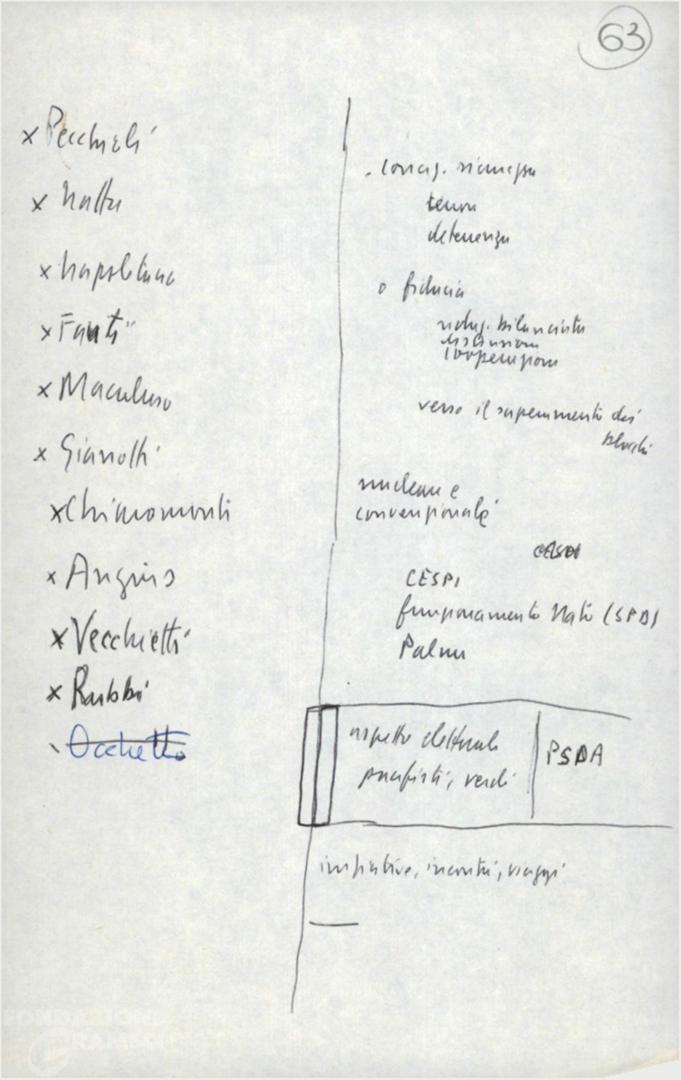 63
x Pecchioli
x Natta
x Napolitano
x Fanti
x Macaluso
x Gianotti
x Chiaromonti
x Angius
x Vecchietti
x Rubbi
Occhetto
. sicurezza
terrore
deterrenza
o fiducia
riduz. bilanciata
distensione
cooperazione
verso il superamento dei
blocchi
nucleare e
convenzionale
CESPI
funzionamento Nato (SPD)
Palme
aspetto elettorale
pacifisti, verdi
PSDA
iniziative, incontri, viaggi
FONDAZIONE
GRAMSCI